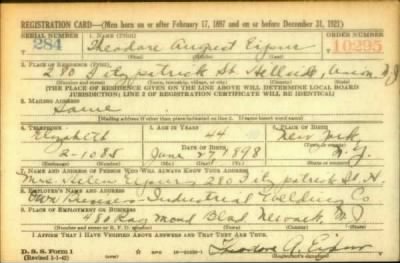 REGISTRATION CARD—(Men born on or after February 17, 1897 and on or before December 31, 1921)
SERIAL NUMBER 1. NAME (Print) ORDER NUMBER
284 Theodore August 10295
(First) (Middle) (Last)
2. PLACE OF RESIDENCE (Print)
280 Fitzpatrick St. Hillside, Union N.J
(Number and street) (Town, township, village, or city) (County) (State)
(THE PLACE OF RESIDENCE GIVEN ON THE LINE ABOVE WILL DETERMINE LOCAL BOARD
JURISDICTION; LINE 2 OF REGISTRATION CERTIFICATE WILL BE IDENTICAL)
3. MAILING ADDRESS
Same
(Mailing address if other than place indicated on line 2. If same insert word same)
4. TELEPHONE 5. AGE IN YEARS 6. PLACE OF BIRTH
Elizabeth 44 New York
DATE OF BIRTH (Town or county)
2-1085 June 27 1898 N.Y.
(Exchange) (Number) (Mo.) (Day) (Yr.) (State or country)
7. NAME AND ADDRESS OF PERSON WHO WILL ALWAYS KNOW YOUR ADDRESS
Mrs. Helen 280 Fitzpatrick St. H
8. EMPLOYER'S NAME AND ADDRESS
Own Business - Industrial Welding Co
9. PLACE OF EMPLOYMENT OR BUSINESS
480 Raymond Blvd Newark N.J
(Number and street or R. F. D. number) (Town) (County) (State)
I AFFIRM THAT I HAVE VERIFIED ABOVE ANSWERS AND THAT THEY ARE TRUE.
D. S. S. Form 1 Theodore A.
(Revised 1-1-42) (over) (Registrant's signature)